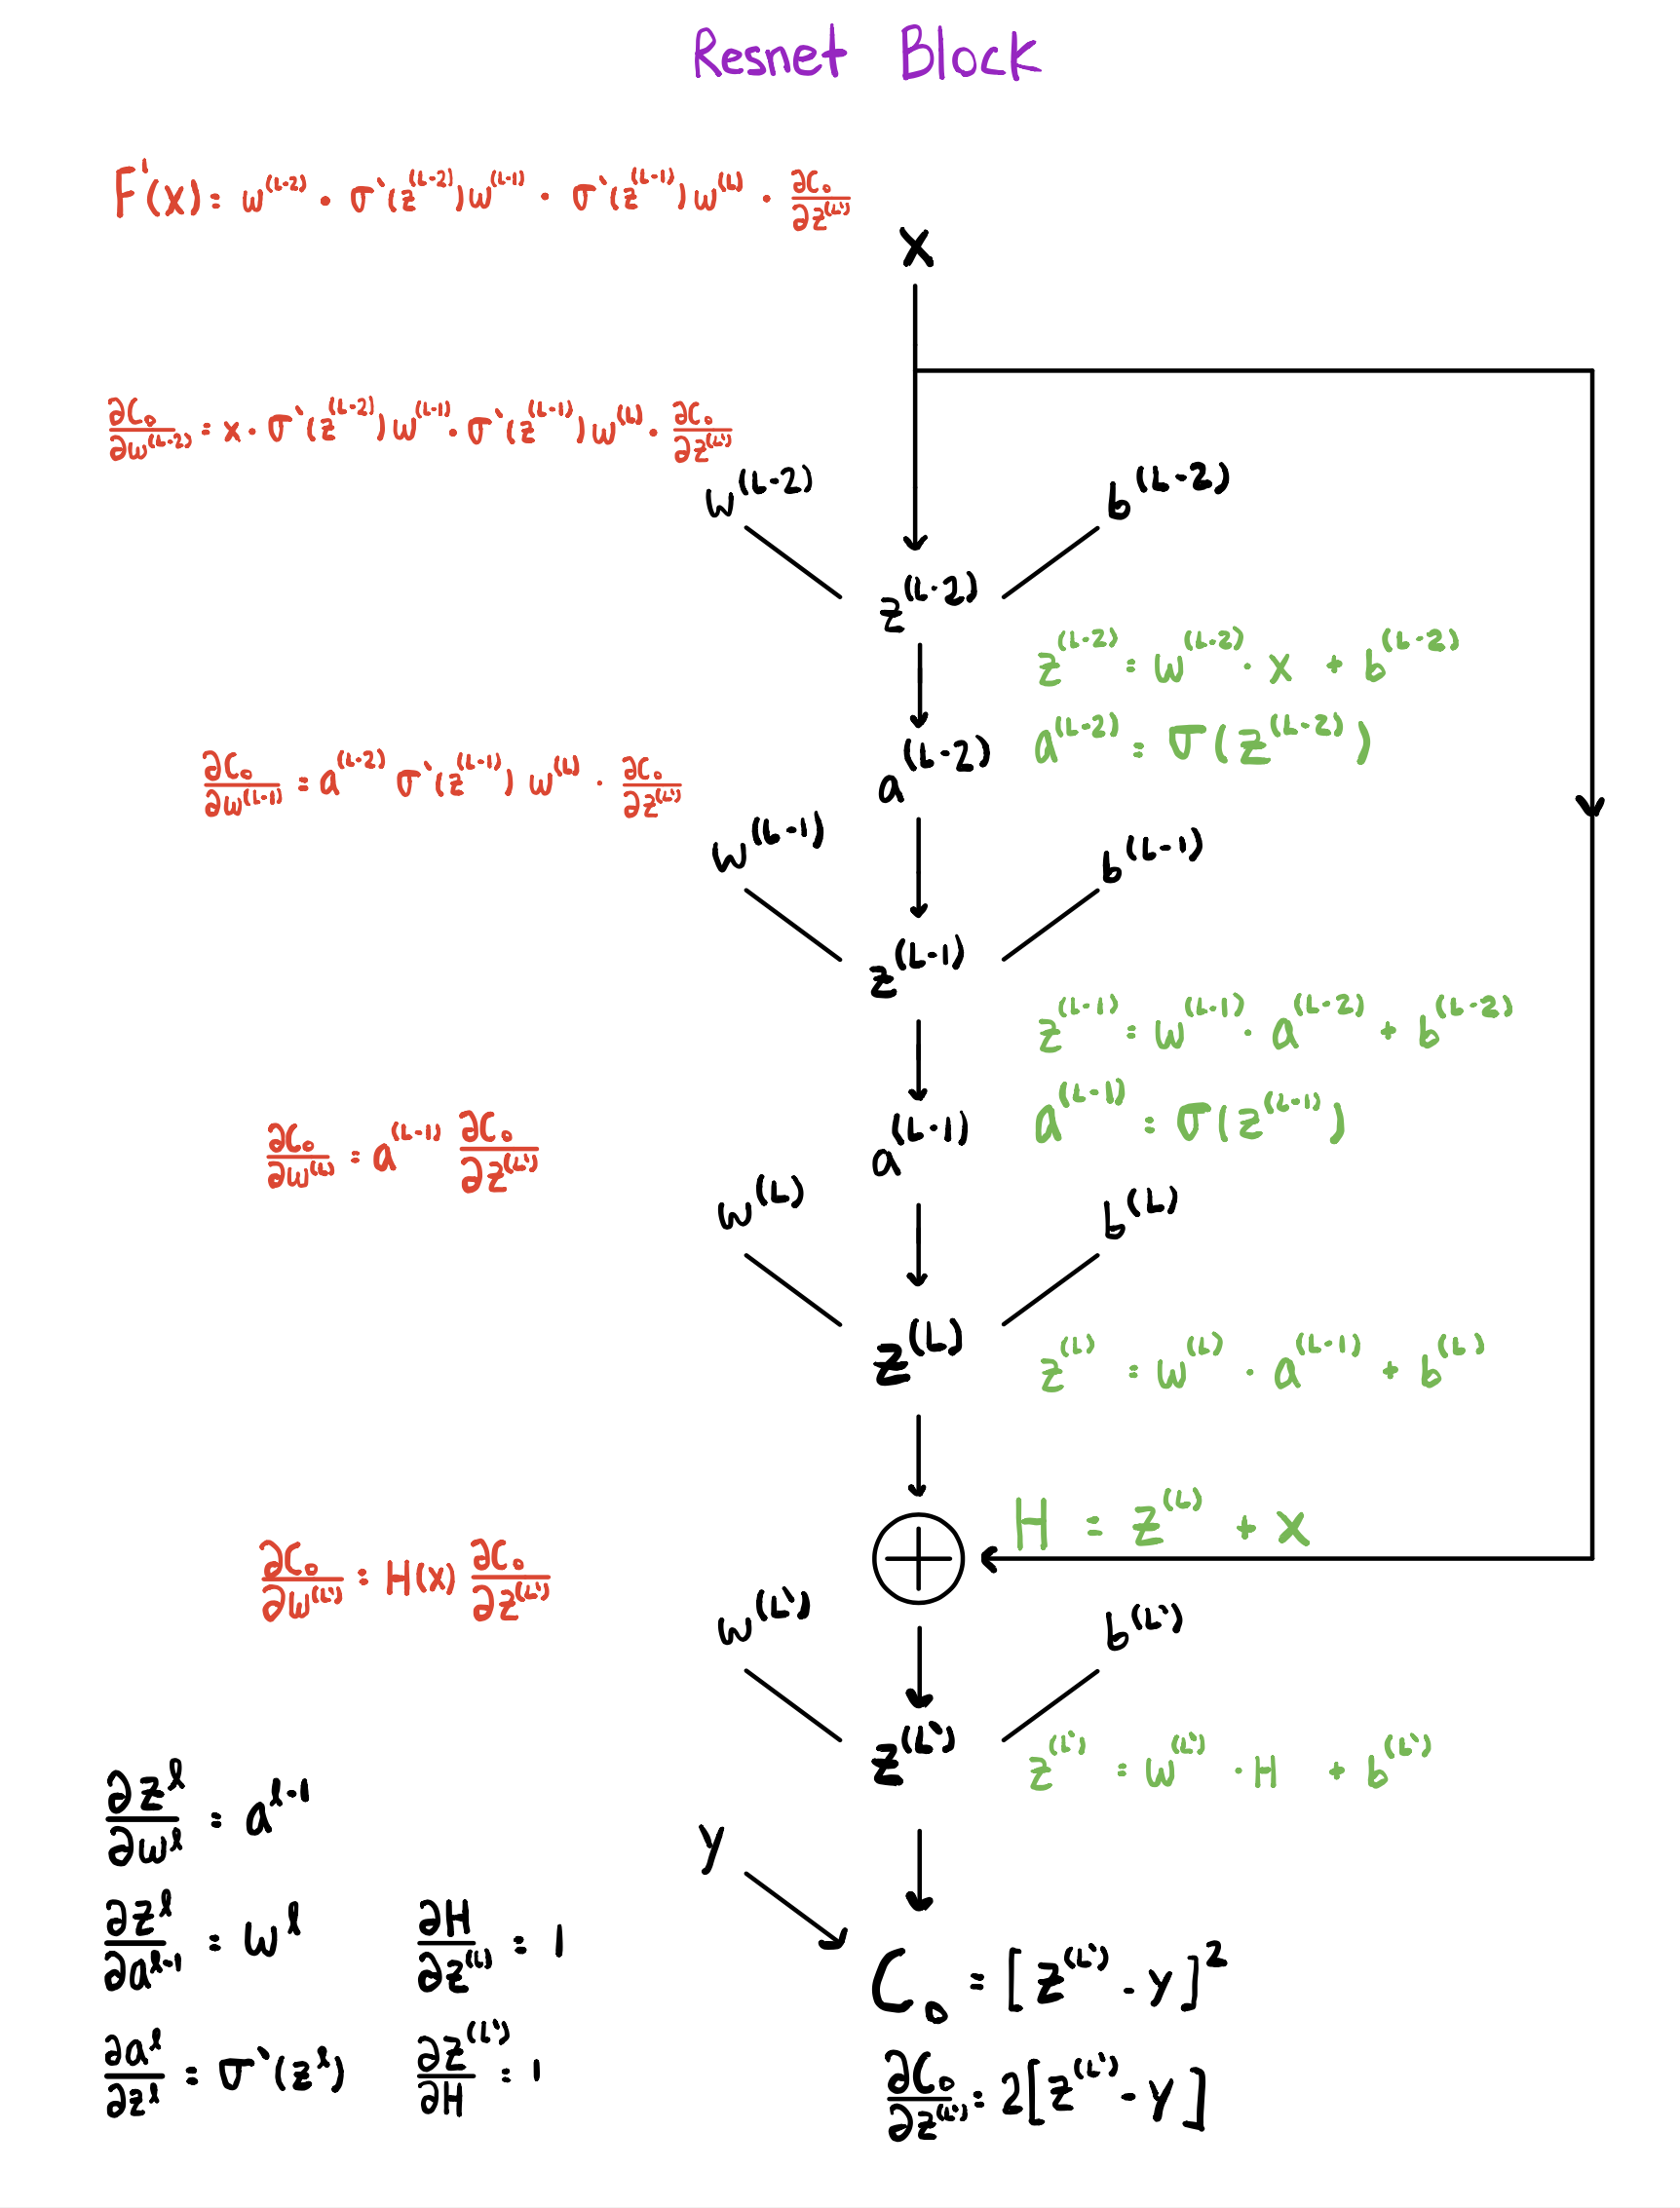 Resnet Block
F'(x) = w^(L-2) · σ'(z^(L-2)) w^(L-1) · σ'(z^(L-1)) w^(L) · ∂C₀/∂z^(L')
x
∂C₀/∂w^(L-2) = x · σ'(z^(L-2)) w^(L-1) · σ'(z^(L-1)) w^(L) · ∂C₀/∂z^(L')
w^(L-2) b^(L-2)
z^(L-2)
z^(L-2) = w^(L-2) · x + b^(L-2)
a^(L-2)
a^(L-2) = σ(z^(L-2))
∂C₀/∂w^(L-1) = a^(L-2) σ'(z^(L-1)) w^(L) · ∂C₀/∂z^(L')
w^(L-1) b^(L-1)
z^(L-1)
z^(L-1) = w^(L-1) · a^(L-2) + b^(L-2)
a^(L-1)
a^(L-1) = σ(z^(L-1))
∂C₀/∂w^(L) = a^(L-1) ∂C₀/∂z^(L')
w^(L) b^(L)
z^(L)
z^(L) = w^(L) · a^(L-1) + b^(L)
H = z^(L) + x
∂C₀/∂w^(L') = H(x) ∂C₀/∂z^(L')
w^(L') b^(L')
z^(L')
z^(L') = w^(L') · H + b^(L')
y
∂z^l/∂w^l = a^l-1
∂z^l/∂a^l-1 = w^l
∂H/∂z^(L) = 1
∂a^l/∂z^l = σ'(z^l)
∂z^(L')/∂H = 1
C₀ = [z^(L') - y]²
∂C₀/∂z^(L') = 2[z^(L') - y]